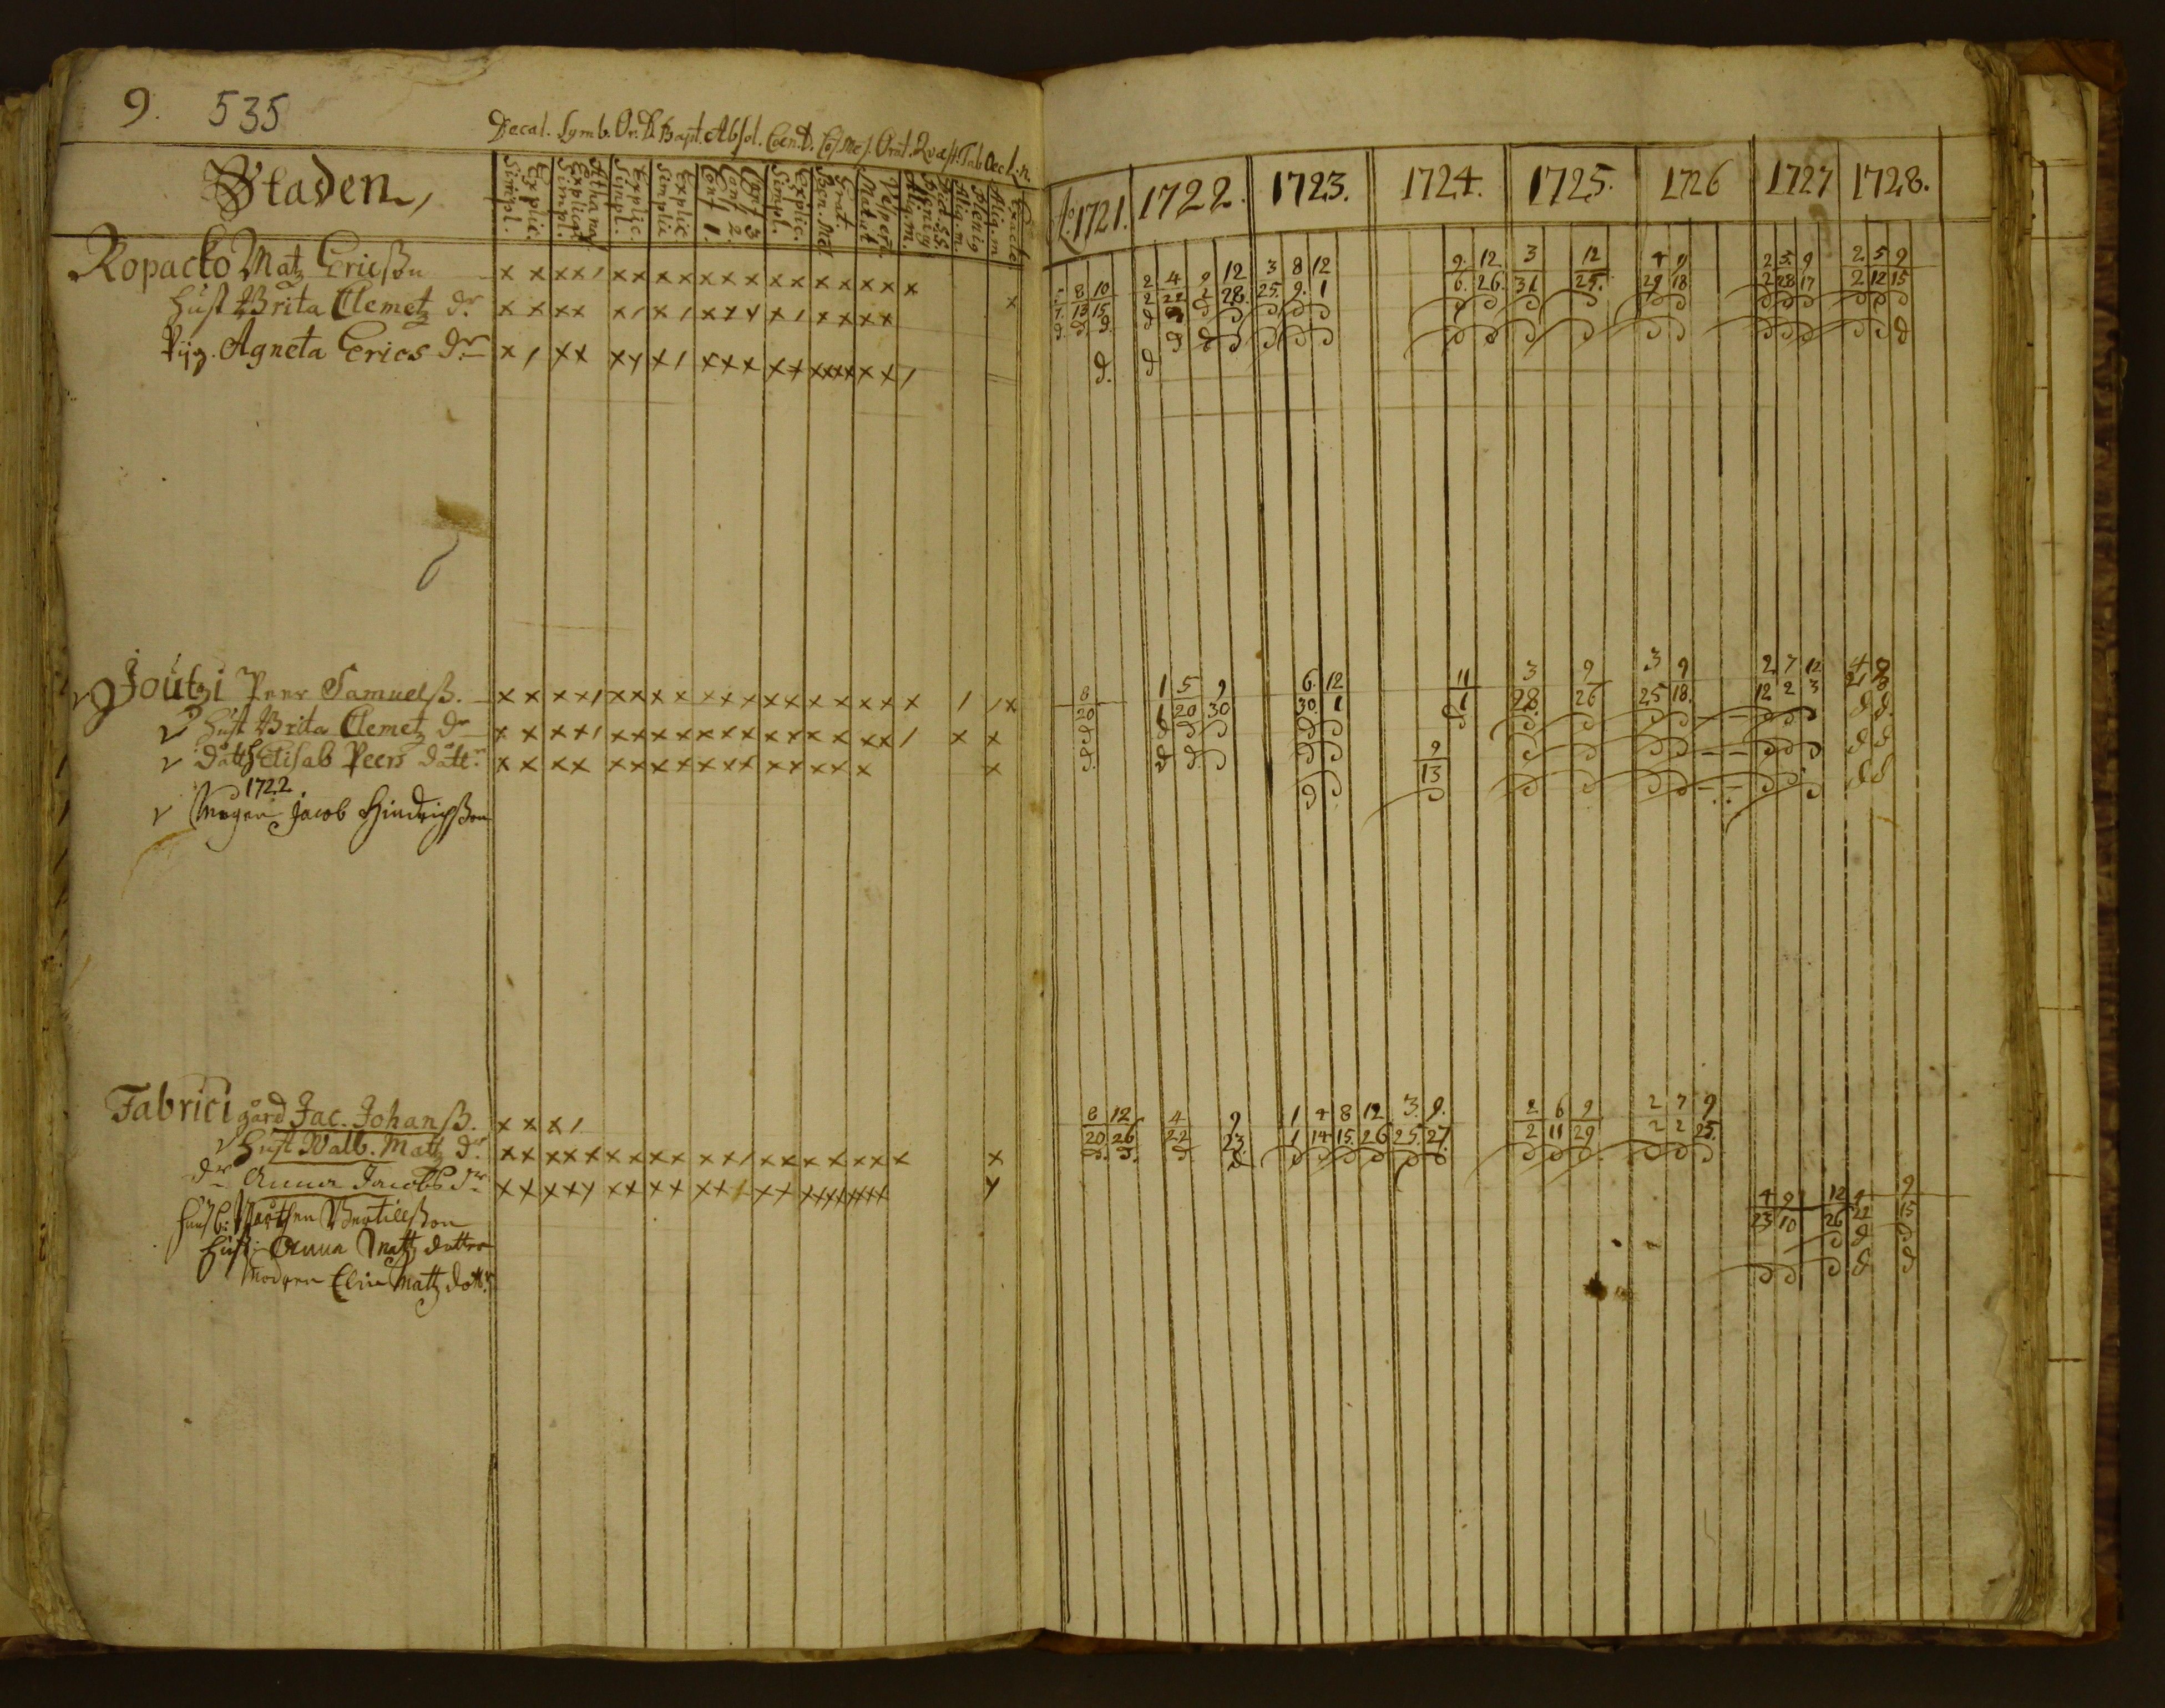 9. 535
Decal. Symb. Or. D. Bapt. Absol. Coen. D. Orat. Quæst. Tab. Oec.
Staden,
Simpl.
Explic.
Simpl.
Explicat
Athanas
Simpl.
Explic.
Simpl.
Explic
Conf 1.
Conf 2.
Conf 3
Simpl.
Explic.
Grat
Matut
Vesper.
Aliq. m.
Aliq. m.
Aliq. m
Exacte
Ao 1721. 1722. 1723. 1724. 1725. 1726 1727 1728.
Ropacko Matz Ericsson
Hust Brita Clemetz dr.
Pig. Agneta Erics dr
8 10 2 4 9 12 3 8 12 9. 12. 3 12 4 9 2 3 9 2 5 9
13 15 2 22 2 28. 25. 9. 1 6. 26. 31 25. 29 18 2 28 17 2 12 15
Joutzi Peer Samuelss.
Hust Brita Clemetz dr
dått Elisab Peers dåttr
1722
Mågen Jacob Hindrichsson
8 1 5 9 6 12 11 3 9 3 9 2 7 12
20 1 20 30 30. 1 1 28. 26 25 18. 12 2 3
9
13
Fabrici gård Jac. Johanss.
Hust Walb. Matz dr.
dr Anna Jacobs dr
8 12 4 9 1 4 8 12 3. 9. 2 6 9 2 7 9
20 26 22 23. 1 14 15. 26 25. 27. 2 11 29 2 2 25.
Husb: Marthen Bertillsson
Hust: Anna Matz dotter
Modren Elin Matz dottr
4 9 12 9
23 10 26 22 15